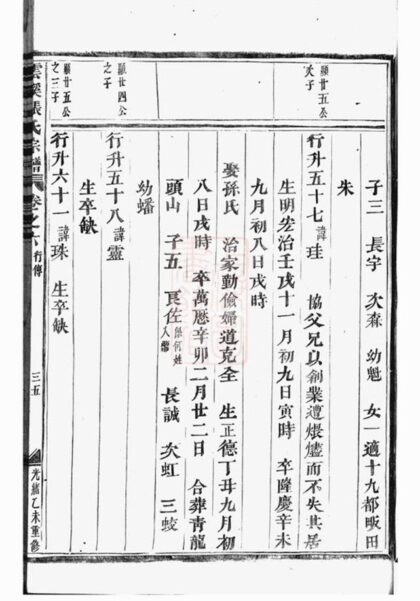 子三 長宇 次森 幼魁 女一適十九都畈田
朱
顯廿五公
次子
行升五十七諱珪 協父兄以創業遭煨燼而不失其居
生明宏治壬戌十一月初九日寅時 卒隆慶辛未
九月初八日戌時
娶孫氏 治家勤儉婦道克全 生正德丁丑九月初
八日戌時 卒萬厯辛卯二月廿二日 合葬青龍
頭山 子五 良佐係何姓入繼 長誠 次虹 三蛟
幼蟠
顯廿四公
之子
行升五十八諱靈
生卒缺
顯廿五公
之三子
行升六十一諱珠 生卒缺
雲溪張氏宗譜 卷之六 行傳 三五 光緒乙未重修